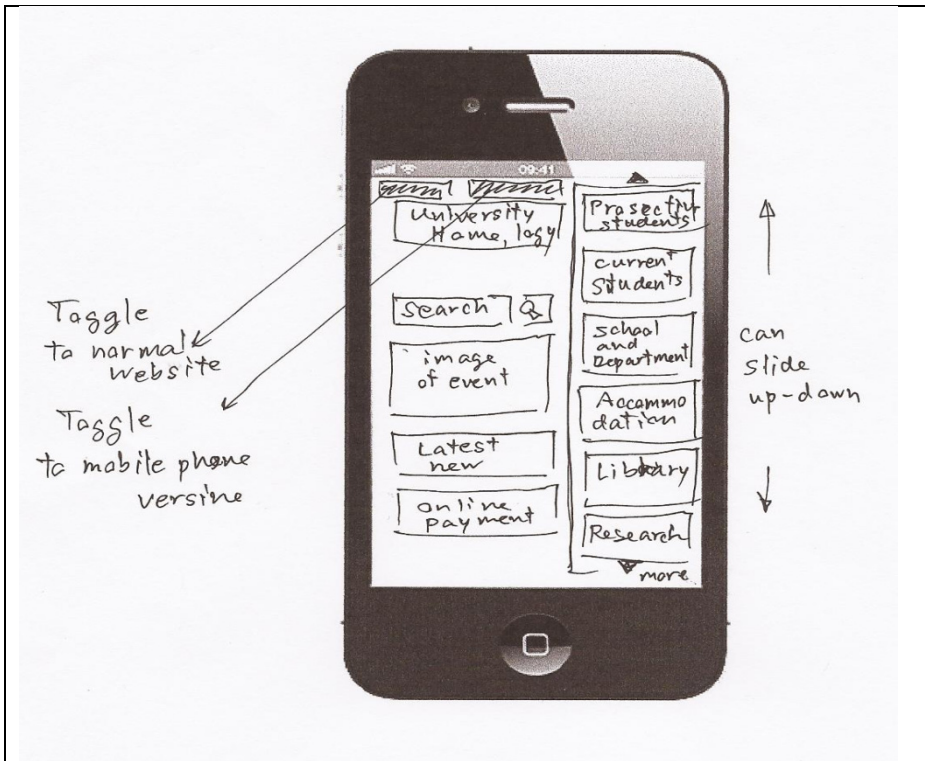 09:41
University
Hame, lagy
Search
image
of event
Latest
new
online
payment
Prosective
students
current
students
school
and
Department
Accammo
dation
Library
Research
more
Taggle
to normal
website
Taggle
to mobile phone
versine
can
slide
up-down